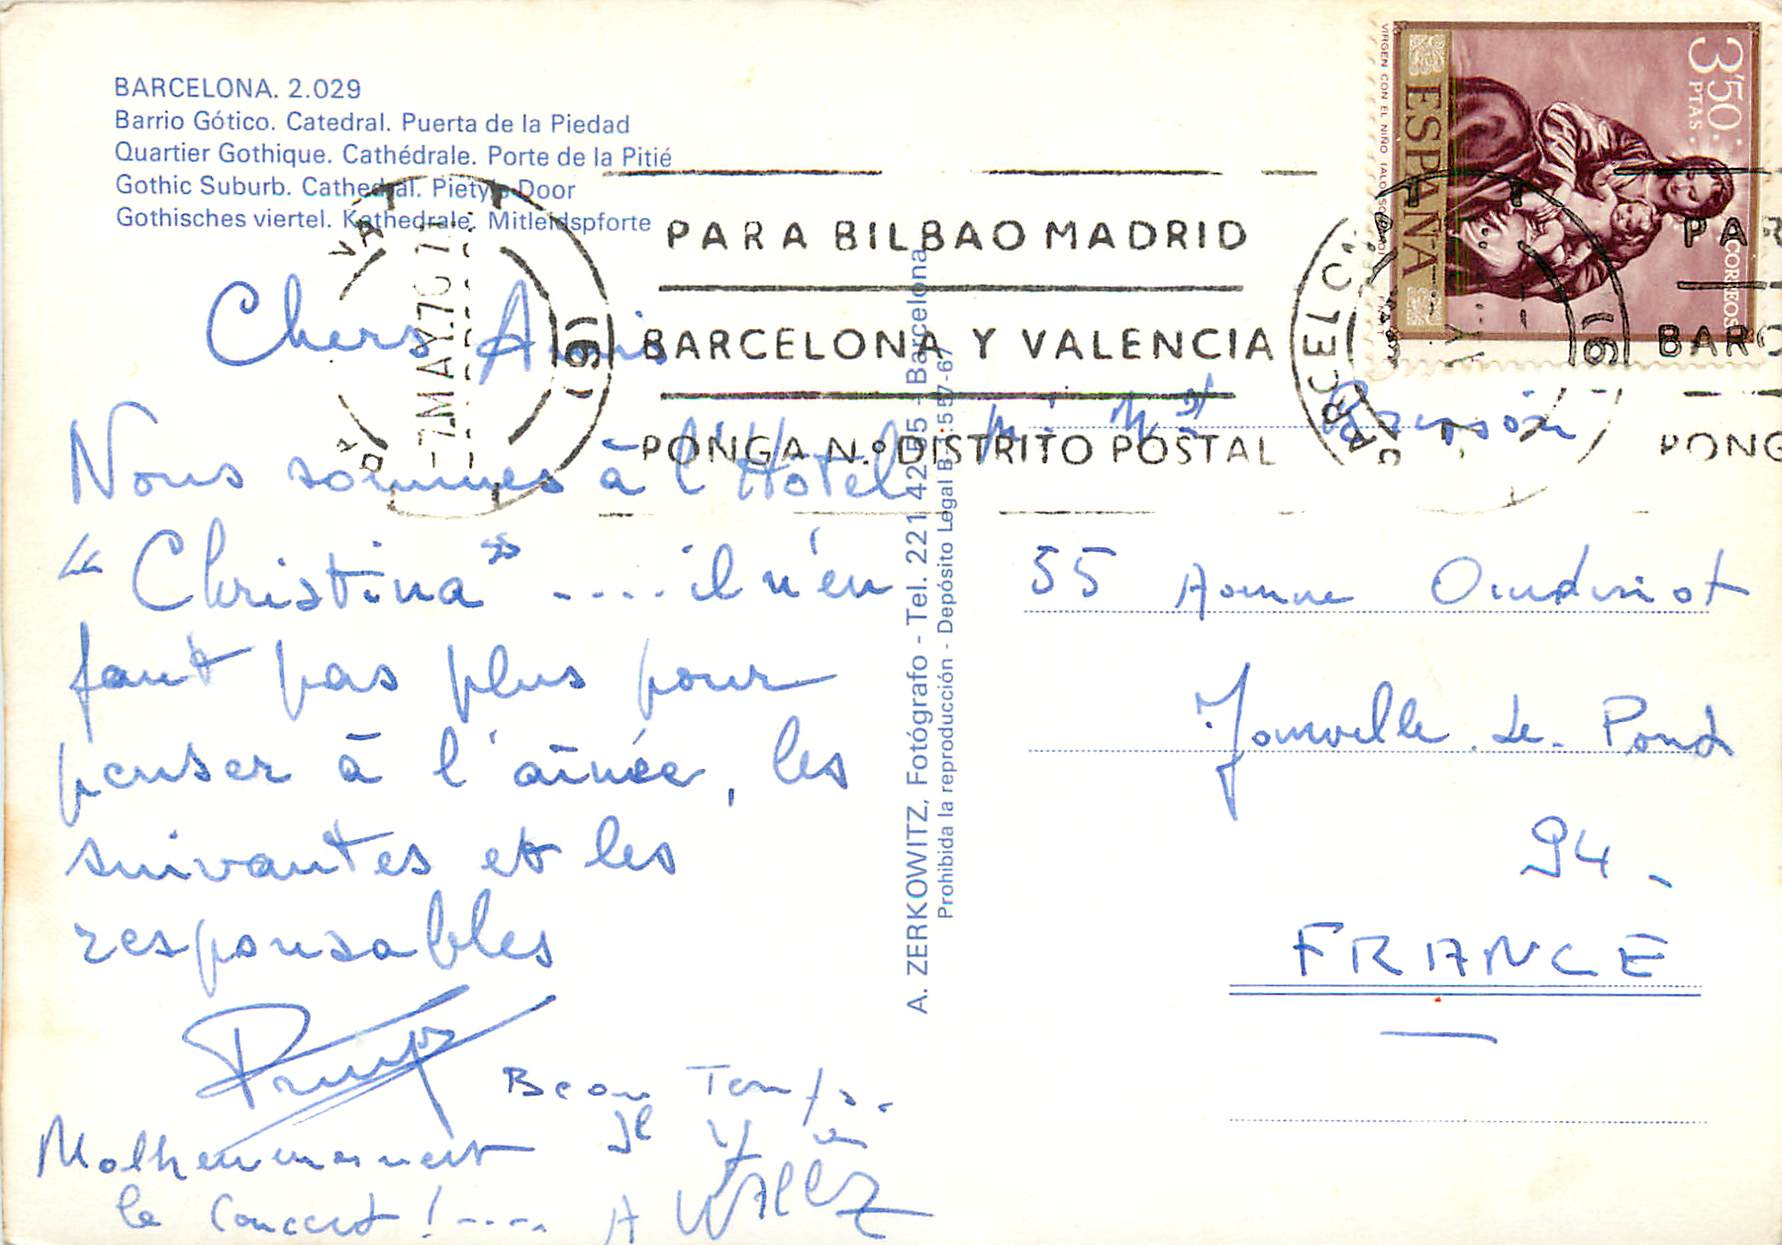 BARCELONA. 2.029
Barrio Gótico. Catedral. Puerta de la Piedad
Quartier Gothique. Cathédrale. Porte de la Pitié
Gothic Suburb. Cathedral. Piety's Door
Gothisches viertel. Kathedrale. Mitleidspforte
Chers Amis
Nous sommes à l'Hotel
"Christina" .... il n'en
faut pas plus pour
penser à l'ainée, les
suivantes et les
responsables
Beau Temps.
Malheureusement Il y a
le Concert ! .... A
A. ZERKOWITZ, Fotógrafo - Tel. 221 42 05 - Barcelona
Prohibida la reproducción - Depósito Legal B. 1.557-67
PARA BILBAO MADRID
BARCELONA Y VALENCIA
PONGA N.º DISTRITO POSTAL
-7.MAY.70
(9)
BARCELO
(9)
PAR
BARC
PONG
3'50 PTAS
CORREOS
ESPAÑA
VIRGEN CON EL NIÑO
55 Avenue Oudinot
Joinville Le Pond
94.
FRANCE